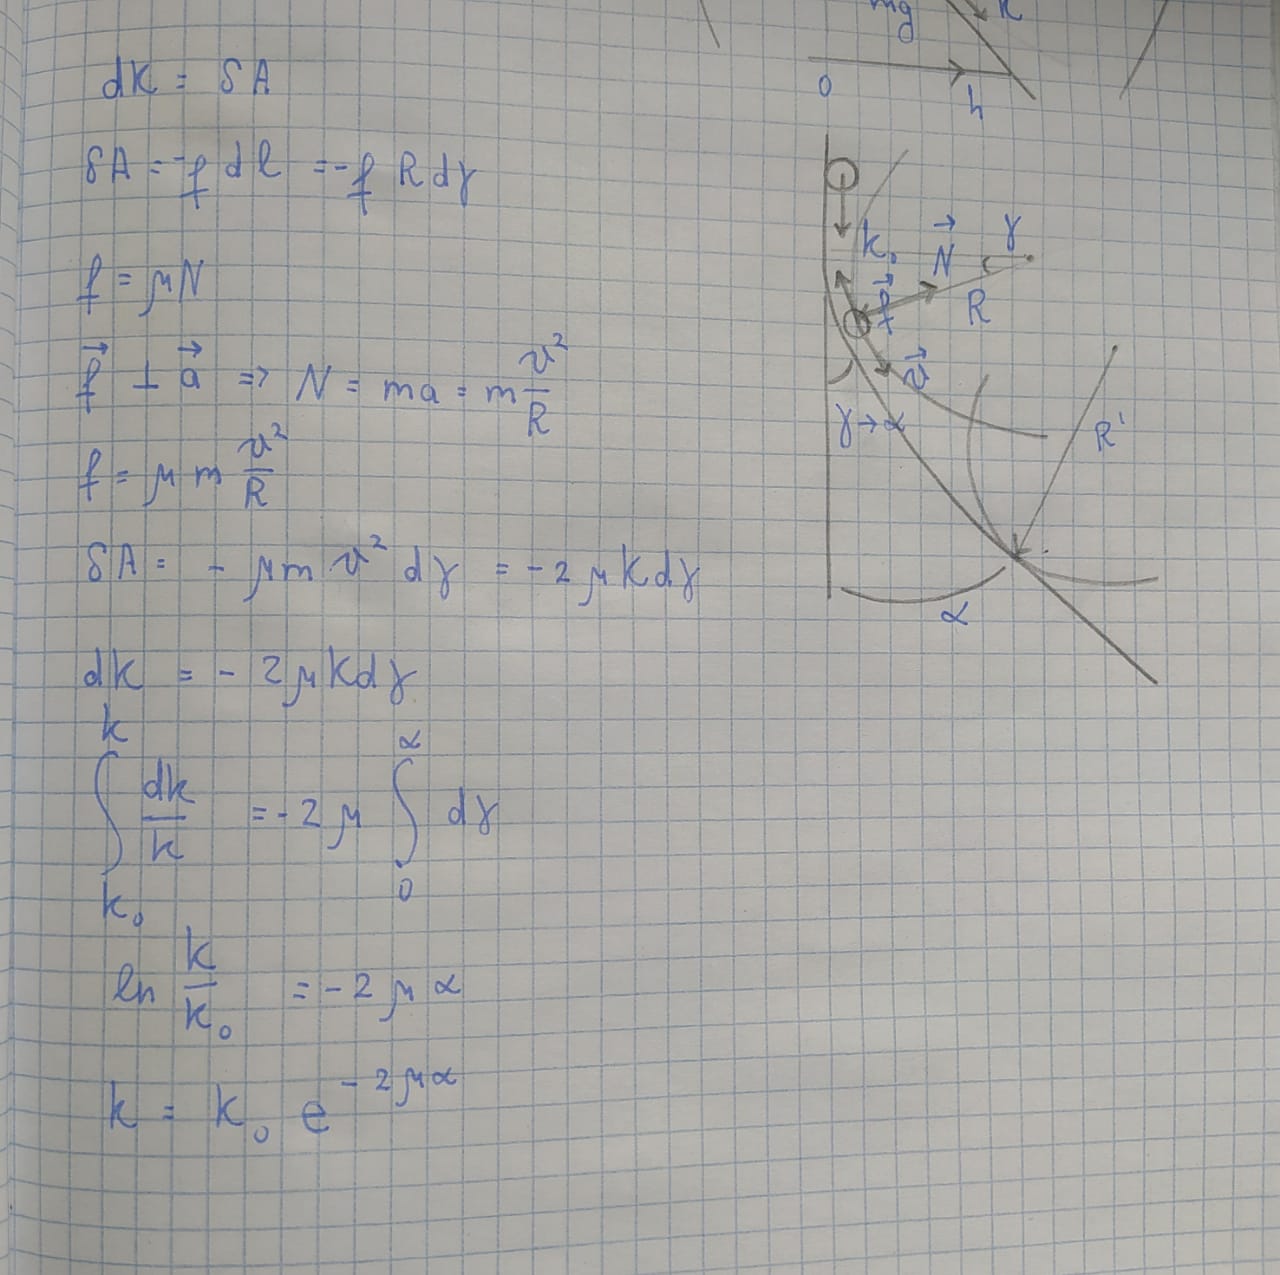 mg
K
0
h
dK = δA
δA = -f dl = -f R dγ
f = μN
f⃗ ⊥ a⃗ => N = ma = m v²/R
f = μ m v²/R
δA = - μm v² dγ = -2 μKdγ
dK = - 2μKdγ
∫_{K₀}^{K} dK/K = -2 μ ∫_{0}^{α} dγ
ln K/K₀ = -2 μ α
K = K₀ e^{-2μα}
K₀
N⃗
γ
f⃗
R
v⃗
γ→α
R'
α